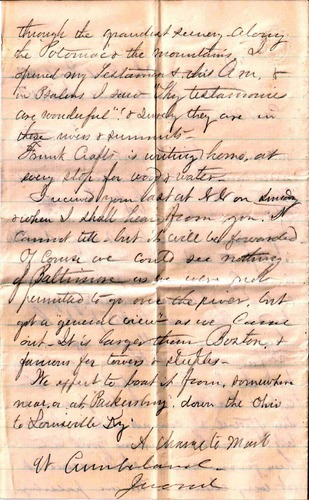 through the grandest scenery along
the Potomac & the mountains, I
opened my Testament this Am, &
in Psalms I saw "Thy testimonies
are wonderful"! & surely they are in
these rivers & summits-
Frank Craft is writing home, at
every stop for wood & water.
I received yours last at N.H on Sunday
& when I shall hear from you. I
cannot tell- but it will be forwarded
Of Course we could see nothing
of Baltimore as we were not
permitted to go over the river, but
got a "general view" as we Came
out- It is larger than Boston, &
famous for towers & steeples-
We expect to boat it from, somewhere
near, or at Parkersburg, down the Ohio
to Louisville Ky
A chance to Mail
at Cumberland-